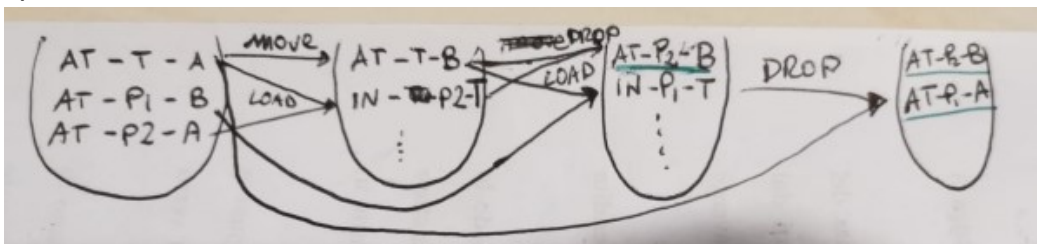 MOVE
AT - T - A
AT - P1 - B
AT - P2 - A
LOAD
AT - T - B
IN - P2-T
DROP
LOAD
AT-P2-B
IN-P1-T
DROP
AT-P2-B
AT-P1-A